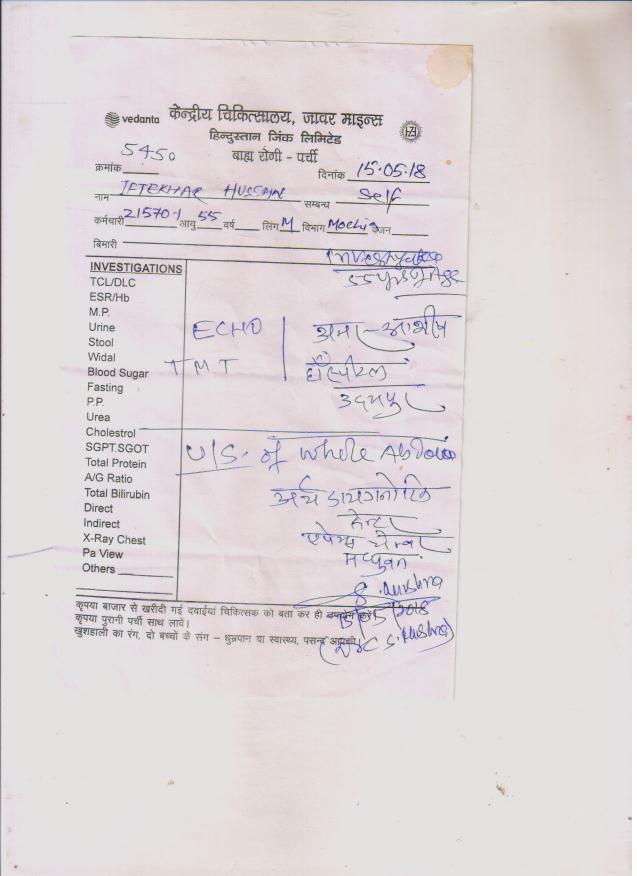 vedanta केन्द्रीय चिकित्सालय, जावर माइन्स
हिन्दुस्तान जिंक लिमिटेड
बाह्य रोगी - पर्ची
क्रमांक 5450 दिनांक 15.05.18
नाम IFTEKHAR HUSSAIN सम्बन्ध Self
कर्मचारी 21570-1 आयु 55 वर्ष लिंग M विभाग Mochia वजन
बिमारी
55 yrs of Age
INVESTIGATIONS
TCL/DLC
ESR/Hb
M.P.
Urine ECHO
Stool
Widal TMT हॉस्पीटल
Blood Sugar
Fasting उदयपुर
P.P.
Urea
Cholestrol
SGPT.SGOT U/S. of Whole Abdomen
Total Protein
A/G Ratio
Total Bilirubin अर्थ डायग्नोस्टिक
Direct सेन्टर
Indirect
X-Ray Chest
Pa View मधुबन
Others
कृपया बाजार से खरीदी गई दवाईयां चिकित्सक को बता कर ही उपयोग करें।
कृपया पुरानी पर्ची साथ लावें।
खुशहाली का रंग, दो बच्चों के संग - धुम्रपान या स्वास्थ्य, पसन्द आपकी।